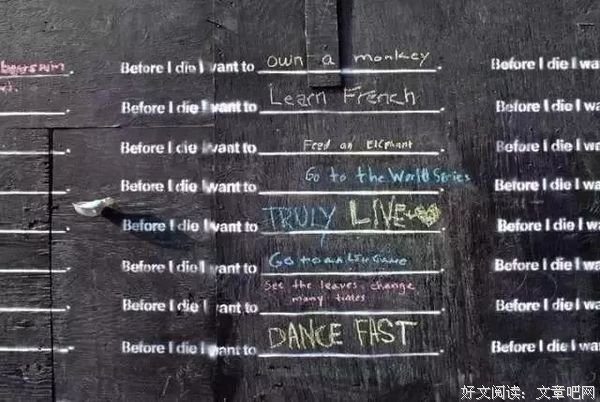 Before I die I want to own a monkey. Before I die I wa
Before I die I want to Learn French. Before I die I wa
Before I die I want to Feed an Elephant. Before I die I wa
Before I die I want to Go to the World Series. Before I die I wa
Before I die I want to TRULY LIVE. Before I die I wa
Before I die I want to Go to. Before I die I wa
See the leaves change
Before I die I want to many times. Before I die I wa
Before I die I want to DANCE FAST. Before I die I wa
好文阅读：文章吧网